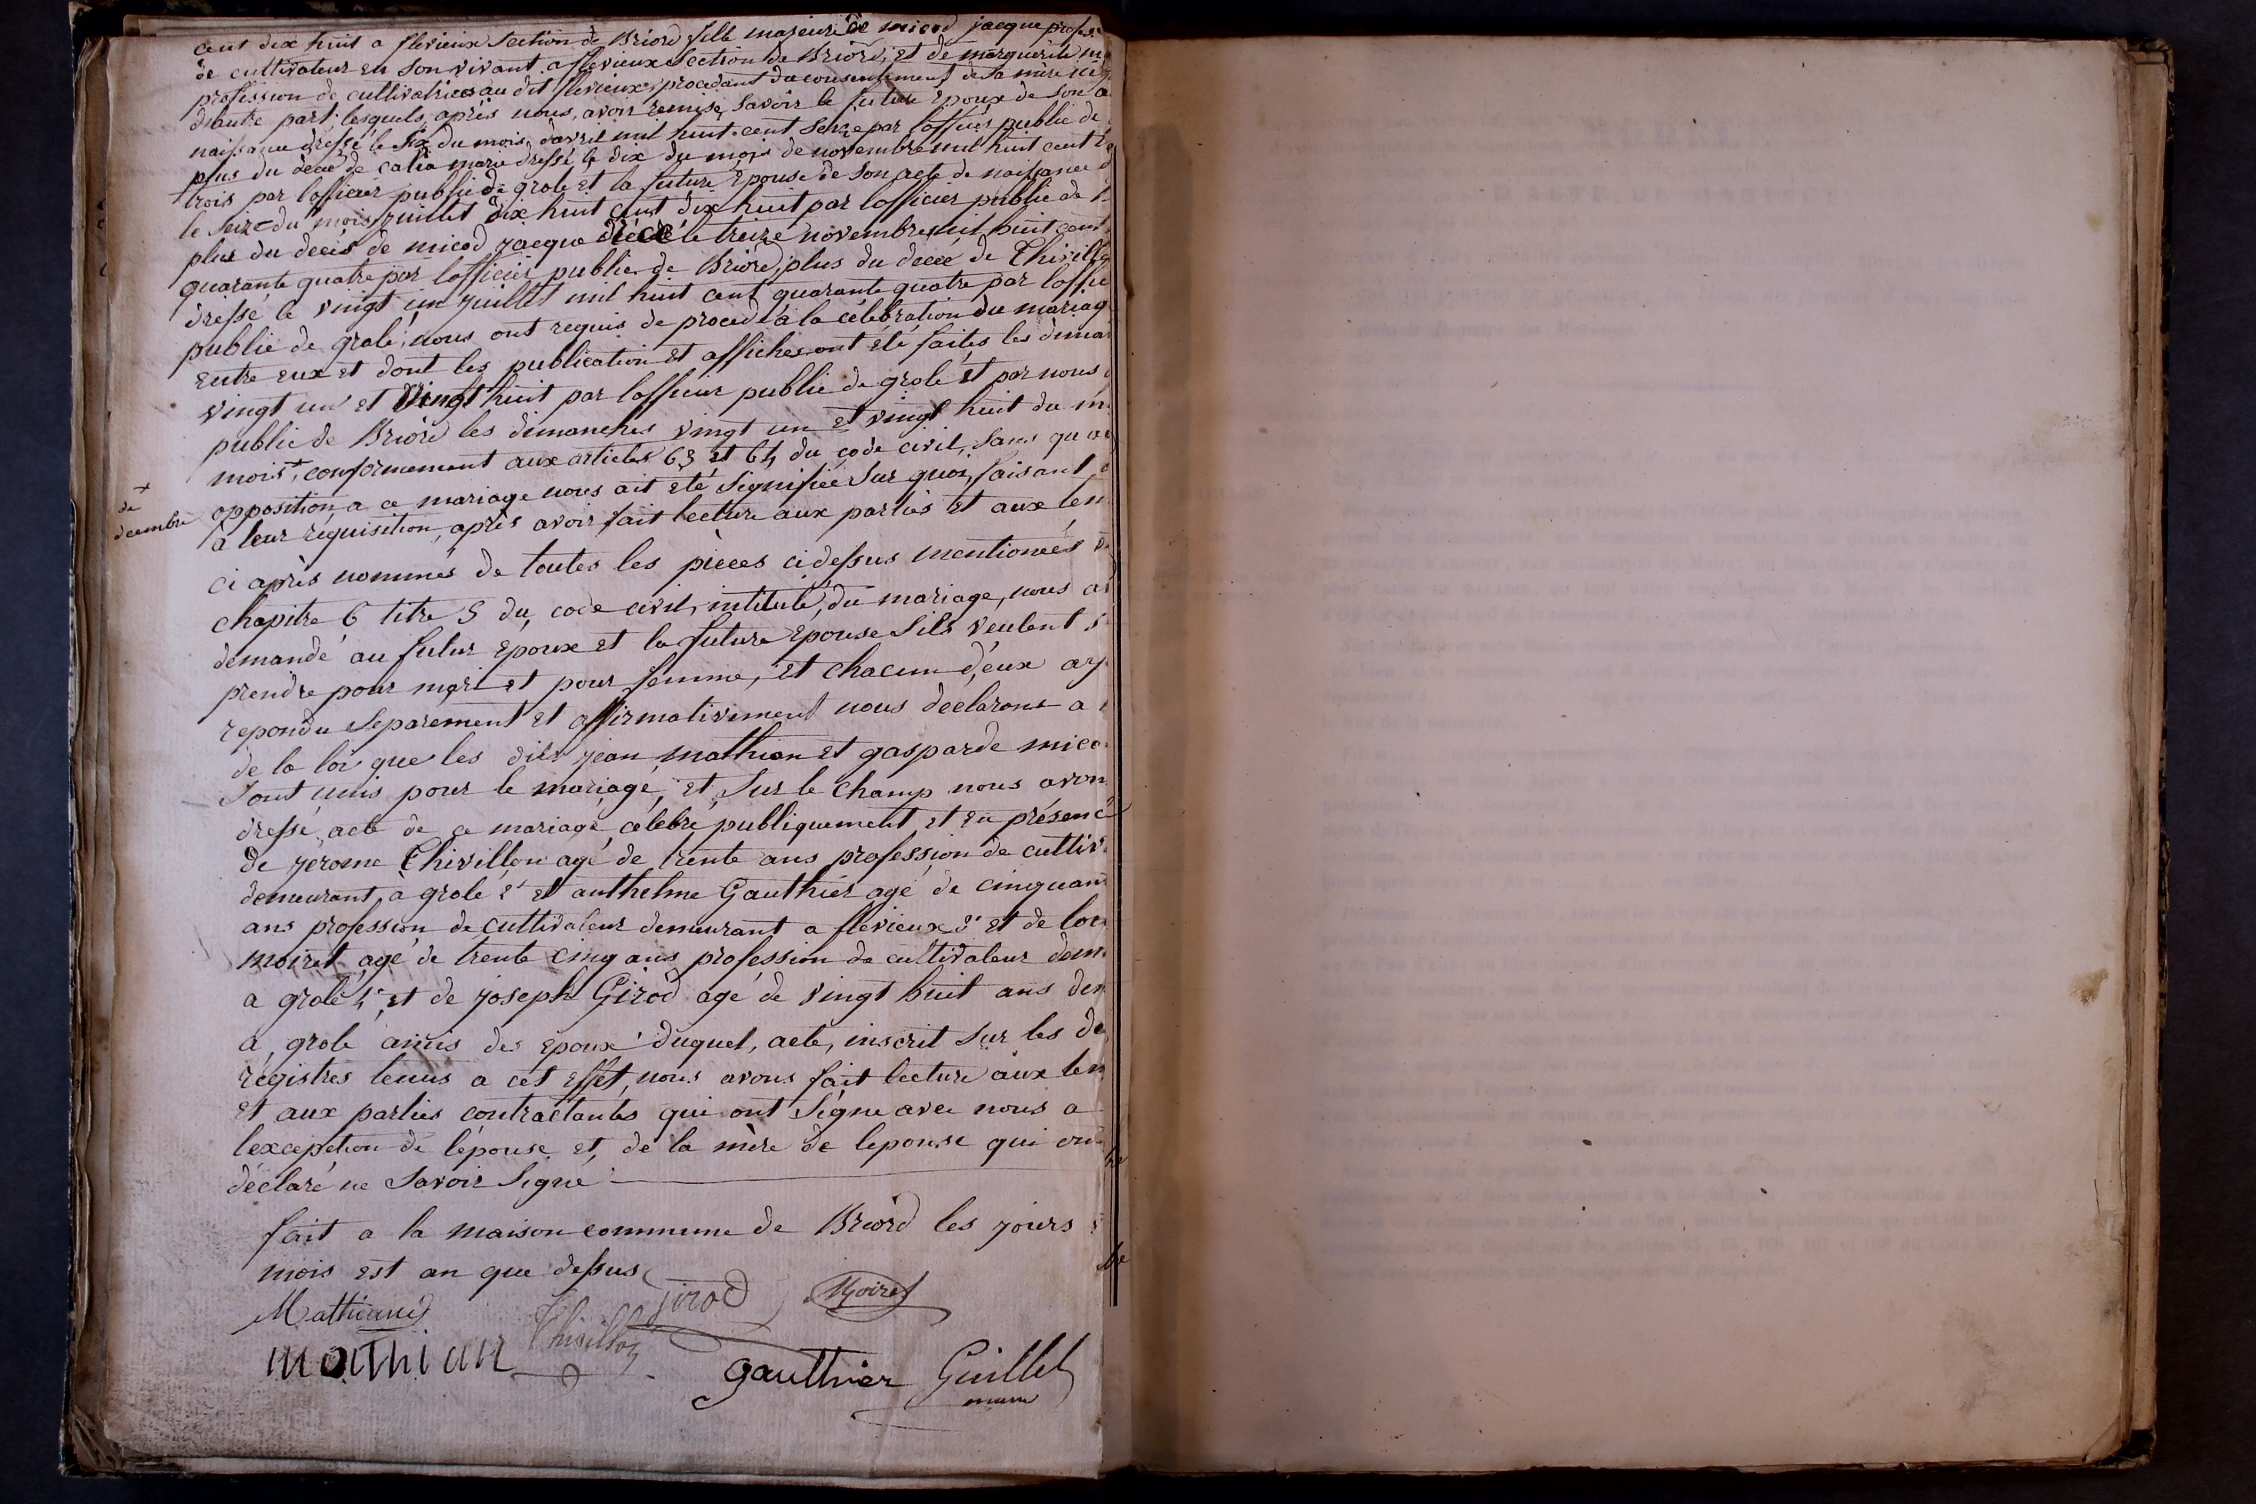 cent dix huit a flevieux Section de Briord fille majeure de micod jacque profes
de cultivateur en son vivant a flevieux Section de Briord, et de marguerite
profession de cultivatrice au dit flevieux, procedant du consentement de sa mère
d'autre part. lesquels, après nous, avoir remise, Savoir le future Epoux de son
naissance dressé le Six du mois d'avril mil huit cent Seize par l'officier public de
plus du décé de catia marie dressé le dix du mois de novembre mil huit cent
trois par l'officier public de grolé et la future Epouse de Son acte de naissance
le Seize du mois juillet dix huit cent dix huit par l'officier public de
plus du décés de micod jacque décédé le treize novembre mil huit cent
quarante quatre par l'officier public de Briord, plus du décé de Thivill
dressé le vingt un juillet mil huit cent quarante quatre par l'offi
public de grolé, nous ont requis de procedé à la célébration du mariag
Entre eux et dont les publication et affiches ont été faites les diman
vingt un et vingt huit par l'officier public de grolé et par nous
public de Briord les dimanches vingt un et vingt huit du m
mois + conformement aux articles 63 et 64 du code civil, Sans qu'au
+ de decembre
opposition a ce mariage nous ait été Signifiée Sur quoi, faisant
à leur réquisition, après avoir fait lecture aux parties et aux tem
ci après nommés de toutes les pièces cidessus mentionnées
chapitre 6 titre 5 du code civil, intitulé, du mariage, nous av
demandé au futur époux et la future Epouse S'ils veulent s
prendre pour mari et pour femme, et chacun d'eux ay
repondu Separement et affirmativement nous déclarons a
de la loi que les dits jean mathian et gasparde mico
Sont unis pour le mariage, et, Sur le champ nous avon
dressé acte de ce mariage célébré publiquement et en présenc
de jerome Thivillon agé de trente ans profession de cultiv
demeurant à grolé 2e et anthelme Gauthier agé de cinquan
ans profession de cultivateur demeurant a flevieux 3e et de lou
moiret agé de trente cinq ans profession de cultivateur dem
a grolé 4e, et de joseph Girod agé de vingt huit ans dem
a grolé amis des époux duquel, acte, inscrit Sur les de
régistres tenus a cet effet, nous avons fait lecture aux tem
et aux parties contractantes qui ont Signé avec nous a
l'exception de l'épouse et, de la mère de l'epouse qui on
déclaré ne Savoir Signé
fait a la maison commune de Briord les jours
mois est an que dessus
girod Moiret
Thivillon
mathian
gauthier Guillet
maire